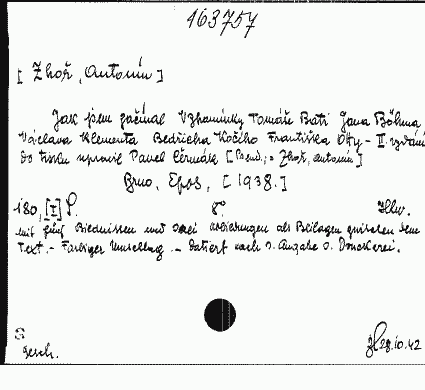 163757
[ Zhoř, Antonín ]
Jak jsem začínal Vzpomínky Tomáše Bati Jana Böhma
Václava Klementa Bedřicha Kočího Františka Otty - II. vydání
Do tisku upravil Pavel Čermák [Pseud., = Zhoř, Antonín]
Brno, Epos, [1938.]
180, [I] S. 8° Illw.
mit fünf Bildnissen und drei Abbildungen als Beilagen zwischen dem
Text. - Farbiger Umschlag. - Datiert nach d. Angabe d. Druckerei.
gesch.
28.10.42